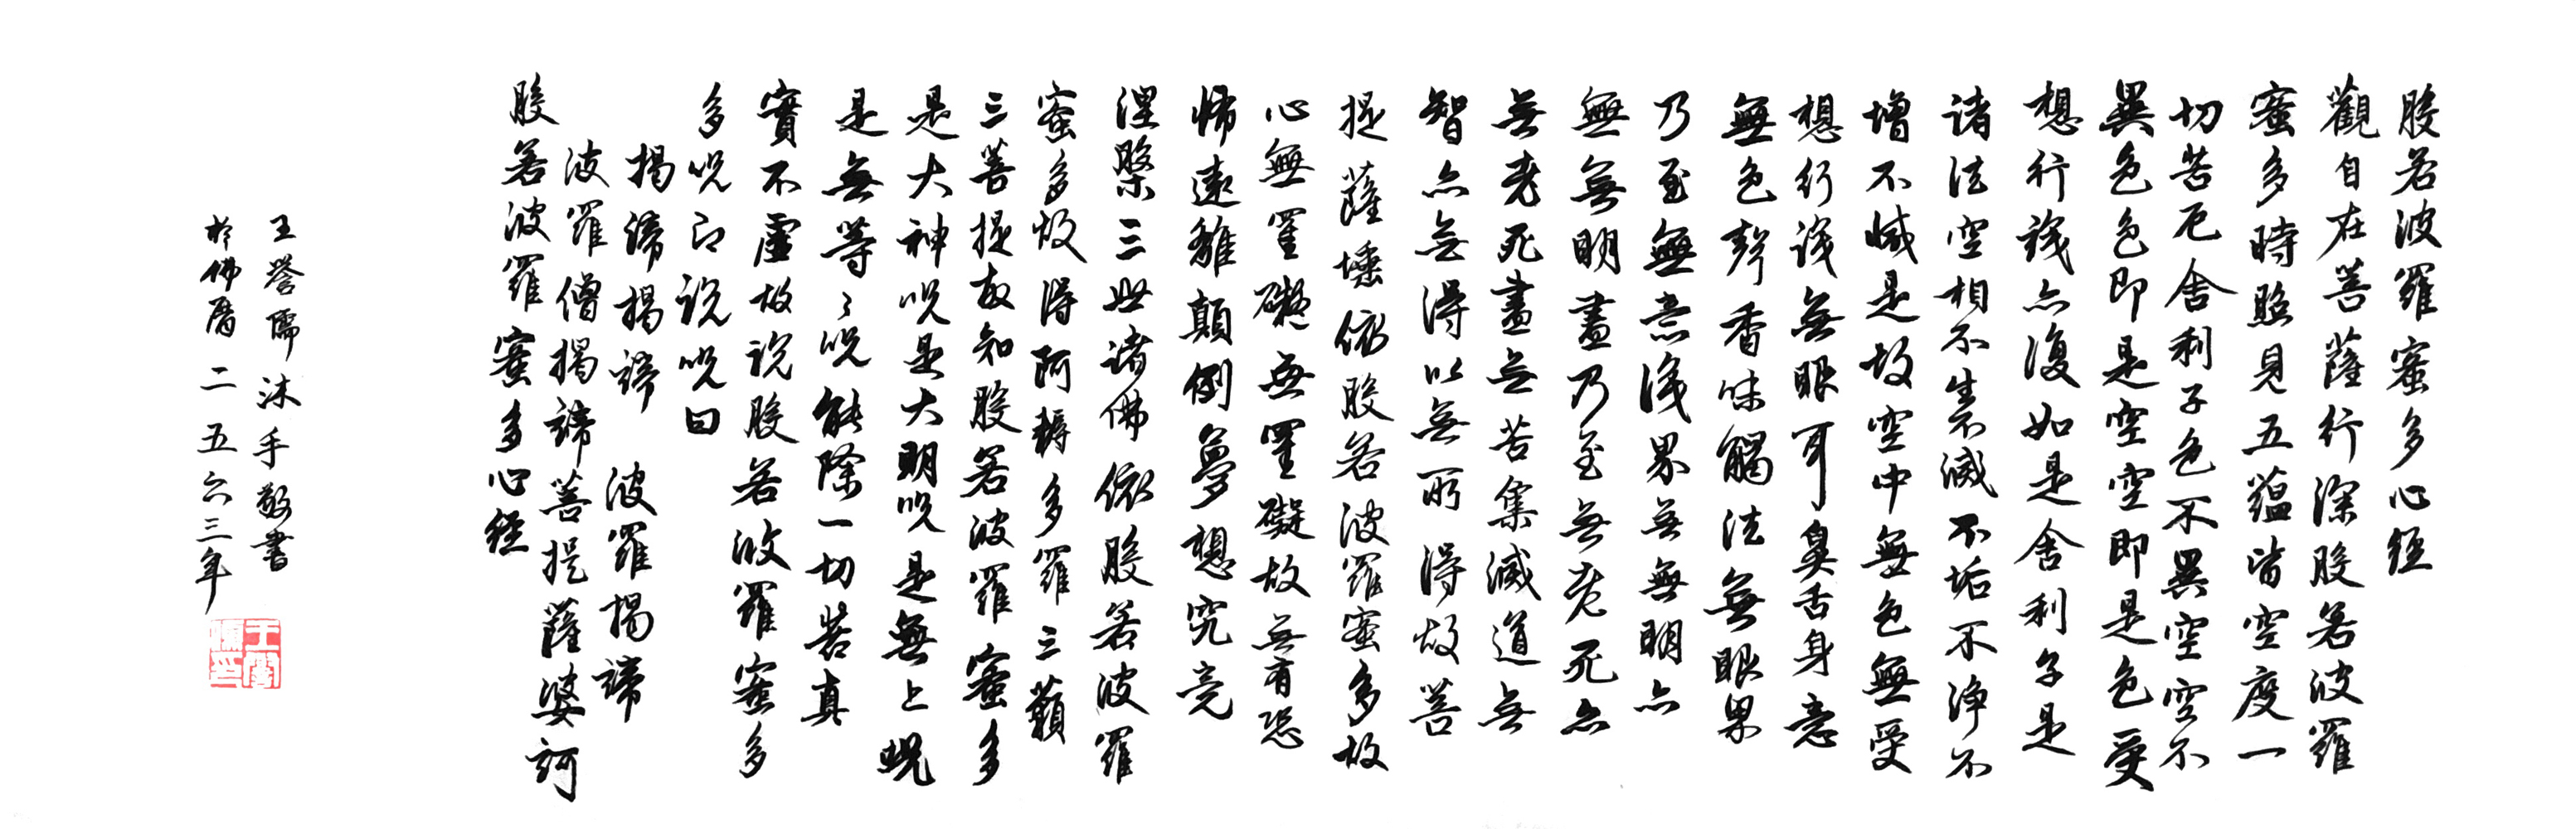 般若波羅蜜多心經
觀自在菩薩行深般若波羅
蜜多時照見五蘊皆空度一
切苦厄舍利子色不異空空不
異色色即是空空即是色受
想行識亦復如是舍利子是
諸法空相不生不滅不垢不淨不
增不減是故空中無色無受
想行識無眼耳鼻舌身意
無色聲香味觸法無眼界
乃至無意識界無無明亦
無無明盡乃至無老死亦
無老死盡無苦集滅道無
智亦無得以無所得故菩
提薩埵依般若波羅蜜多故
心無罣礙無罣礙故無有恐
怖遠離顛倒夢想究竟
涅槃三世諸佛依般若波羅
蜜多故得阿耨多羅三藐
三菩提故知般若波羅蜜多
是大神咒是大明咒是無上咒
是無等〻咒能除一切苦真
實不虛故說般若波羅蜜多
多咒即說咒曰
揭諦揭諦 波羅揭諦
波羅僧揭諦菩提薩婆訶
般若波羅蜜多心經
王譽儒沐手敬書
於佛曆二五六三年
王譽儒印